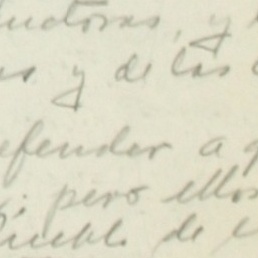 ductoras, y
as y de las
efender a
; pero ellos
pueblo de